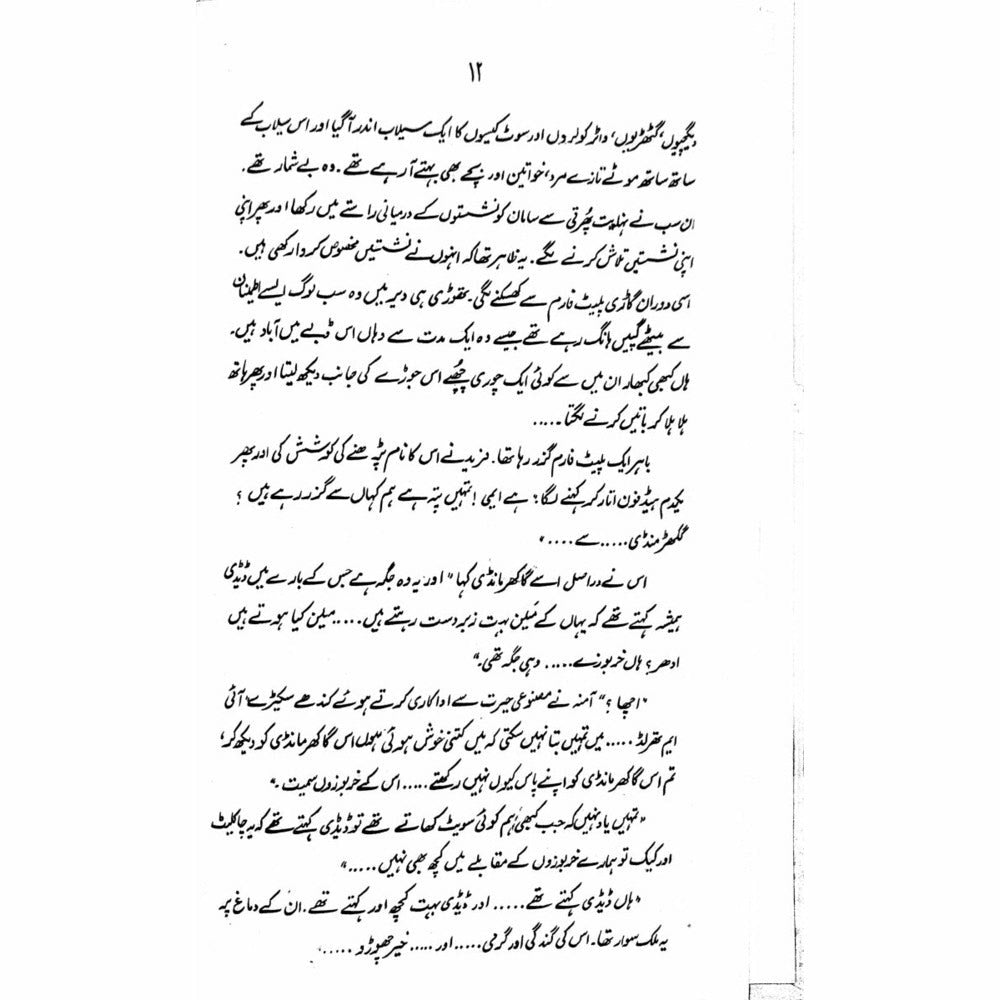 ۱۲
دیگچیوں، گٹھڑیوں، واٹر کولروں اور سوٹ کیسوں کا ایک سیلاب اندر آگیا اور اس سیلاب کے
ساتھ ساتھ موٹے تازے مرد، خواتین اور بچے بھی بہتے آ رہے تھے۔ وہ بے شمار تھے۔
ان سب نے نہایت پھُرتی سے سامان کو نشستوں کے درمیانی راستے میں رکھا اور پھر اپنی
اپنی نشستیں تلاش کرنے لگے۔ یہ ظاہر تھا کہ انہوں نے نشستیں مخصوص کروا رکھی ہیں۔
اسی دوران گاڑی پلیٹ فارم سے کھسکنے لگی۔ تھوڑی ہی دیر میں وہ سب لوگ ایسے اطمینان
سے بیٹھے گپیں ہانک رہے تھے جیسے وہ ایک مدت سے وہاں اس ڈبے میں آباد ہیں۔
ہاں کبھی کبھار ان میں سے کوئی ایک چوری چھُپے اس جوڑے کی جانب دیکھ لیتا اور پھر ہاتھ
ہلا ہلا کر باتیں کرنے لگتا.....
باہر ایک پلیٹ فارم گزر رہا تھا۔ مزید نے اس کا نام پڑھنے کی کوشش کی اور پھر
یکدم ہیڈ فون اتار کر کہنے لگا؛ ہے ایمی! تمہیں پتہ ہے ہم کہاں سے گزر رہے ہیں؟
گکھڑ منڈی.....سے...."
اس نے دراصل اسے گاکھر مانڈی کہا "اور یہ وہ جگہ ہے جس کے بارے میں ڈیڈی
ہمیشہ کہتے تھے کہ یہاں کے مَیلن بہت زبردست رہتے ہیں.....میلن کیا ہوتے ہیں
ادھر؟ ہاں خربوزے..... وہی جگہ تھی۔"
"اچھا؟" آمنہ نے مصنوعی حیرت سے اداکاری کرتے ہوئے کندھے سکیڑے "آئی
ایم تھرلڈ.....میں تمہیں بتا نہیں سکتی کہ میں کتنی خوش ہوئی ہوں اس گاکھر مانڈی کو دیکھ کر،
تم اس گاکھر مانڈی کو اپنے پاس کیوں نہیں رکھتے.....اس کے خربوزوں سمیت۔"
"تمہیں یاد نہیں کہ جب کبھی ہم کوئی سویٹ کھاتے تھے تو ڈیڈی کہتے تھے کہ یہ چاکلیٹ
اور کیک تو ہمارے خربوزوں کے مقابلے میں کچھ بھی نہیں....."
"ہاں ڈیڈی کہتے تھے..... اور ڈیڈی بہت کچھ اور کہتے تھے۔ ان کے دماغ پر
یہ ملک سوار تھا۔ اس کی گندگی اور گرمی.....اور.....خیر چھوڑو.....